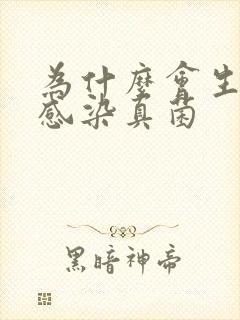 為什麼會生
感染真菌
黑暗神帝